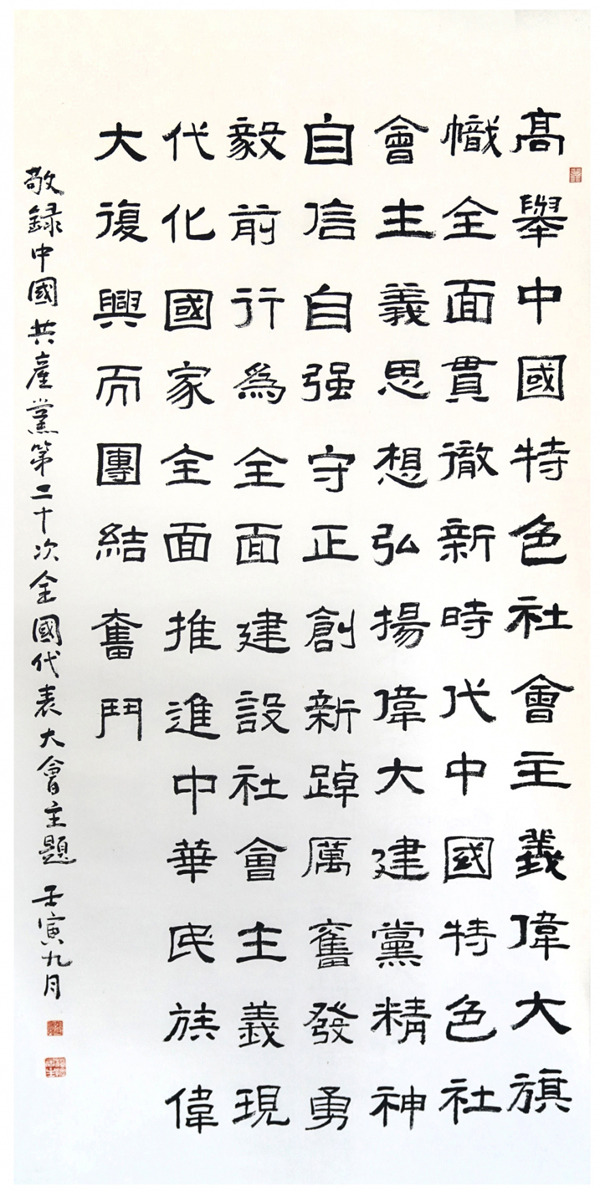 高舉中國特色社會主義偉大旗
幟全面貫徹新時代中國特色社
會主義思想弘揚偉大建黨精神
自信自强守正創新踔厲奮發勇
毅前行為全面建設社會主義現
代化國家全面推進中華民族偉
大復興而團結奮鬥
敬録中國共產黨第二十次全國代表大會主題 壬寅九月